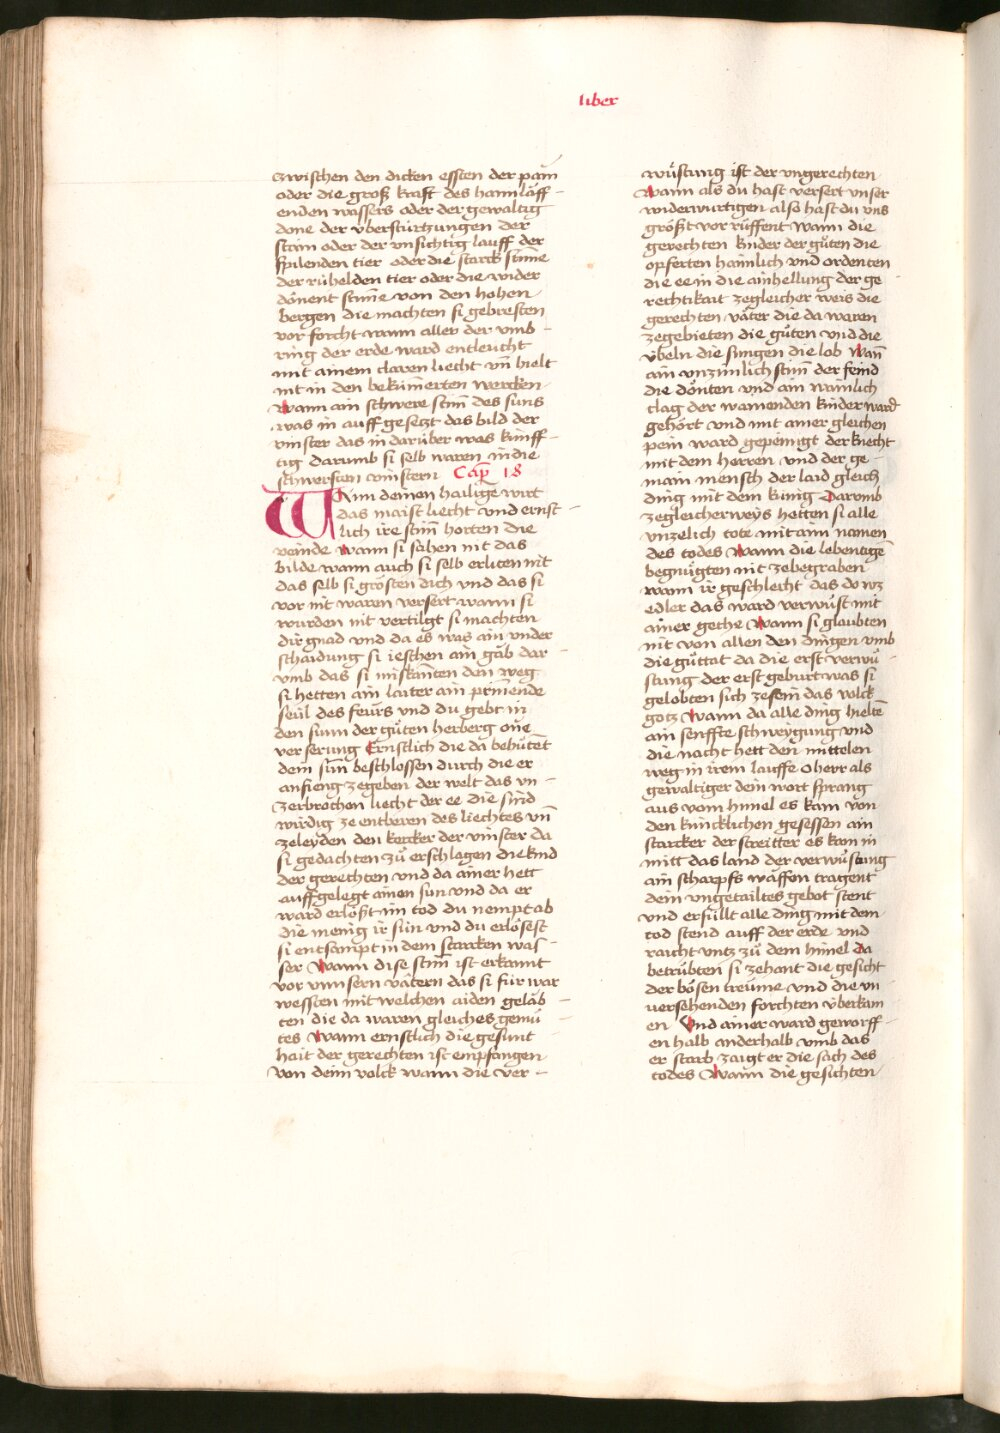 liber
zwischen den dicken essten der pam̄
oder die groß kraft des hamläff-
enden wassers oder der gewaltig
done der v̈berstürtzungen der
stain oder der vnsichtig lauff der
spilenden tier oder die starck stim̄e
der rühelden tier oder die wider
dönent stim̄e von den hohen
bergen die machten si gebresten
vor forcht wann aller der vmb-
ring der erde ward entleucht
mit ainem claren liecht vn̄ hielt
nit in den bekümerten wercken
Wann ain schwere stim̄ des suns
was in auffgesetzt das bild der
vinster das in darüber was künff-
tig darumb si selb waren in die
schwersten vinstern Cap̄ 18
Wann deinen hailigē wirt
das maist liecht vnd ernst-
lich ire stim̄ horten die
veinde wann si sahen nit das
bilde wann auch si selb erliten nit
das selb si grösten dich vnd das si
vor nit waren versert wann si
wurden nit vertilgt si machten
dir gnad vnd da es was ain vnder
schaidung si ieschen ain gäb dar-
vmb das si inskanten den weg
si hetten ain laiter ain prinnende
seül des feürs vnd du gebt in
den sunn der güten herberg one
verserung Ernstlich die da behüten
dein sün beschlossen durch die er
anfieng zegeben der welt das vn-
zerbrochen liecht der ee die sind
wirdig ze entberen des liechtes vn̄
zeleyden den kercker der vinster da
si gedachten zů erschlagen die kind
der gerechten vnd da ainer hett
auffgelegt ainen sun vnd da er
ward erlößt im tod du nempt ab
die menig ir sün vnd du erlösest
si entsampt in dem starcken was-
ser Wann dise stim̄ ist erkannt
vor vnnsern vätern das si für war
wessten mit welchen aiden geläb-
ten die da waren gleiches gemü-
tes Wann ernstlich die gesunt
hait der gerechten ist empfangen
von deim volck wann die ver-
wüstung ist der vngerechten
Wann als du hast versert vnser
widerwurtigen also hast du vns
größt vor rüffent wann die
gerechten kinder der gůten die
opferten haimlich vnd ordenten
die ee in die ainhellung der ge
rechtikait zegleicher weis die
gerechten väter die da waren
zegebieten die gůten vnd die
v̈beln die sungen die lob Wan̄
ain vnzimlich stim̄ der feind
die dönten vnd ain wainlich
clag der wainenden kinder ward
gehört vnd mit ainer gleichen
pein ward gepeinigt der knecht
mit dem herren vnd der ge-
main mensch der laid gleich
ding mit dem künig Darumb
zegleicherweys hetten si alle
vnzelich tote mit aim namen
des todes Wann die lebentigē
begnügten nit zebegraben
wann ir geschlecht das do wz
edler das ward verwüst mit
ainer geche Wann si glaubten
nit von allen den dingen vmb
die gůttat da die erst verwü-
stung der erst geburt was si
gelobten sich ze sein das volck
gotz Wann da alle ding hieltē
ain senffte schweygung vnd
die nacht hett den mittelen
weg in irem lauffe O herr als
gewaltiger dein wort sprang
aus vom himel es kam von
den küncklichen gesessen ain
starcker der streitter es kam in
mitt das land der verwůstung
ain scharpfs wäffen tragent
dein vngetailtes gebot stent
vnd erfüllt alle ding mit dem
tod stend auff der erde vnd
raicht vntz zů dem himel da
betrübten si zehant die gesicht
der bösen treüme vnd die vn-
versehenden forchten v̈berkam
en Vnd ainer ward geworff-
en halb anderhalb vmb das
er starb zaigt er die sach des
todes Wann die gesichten